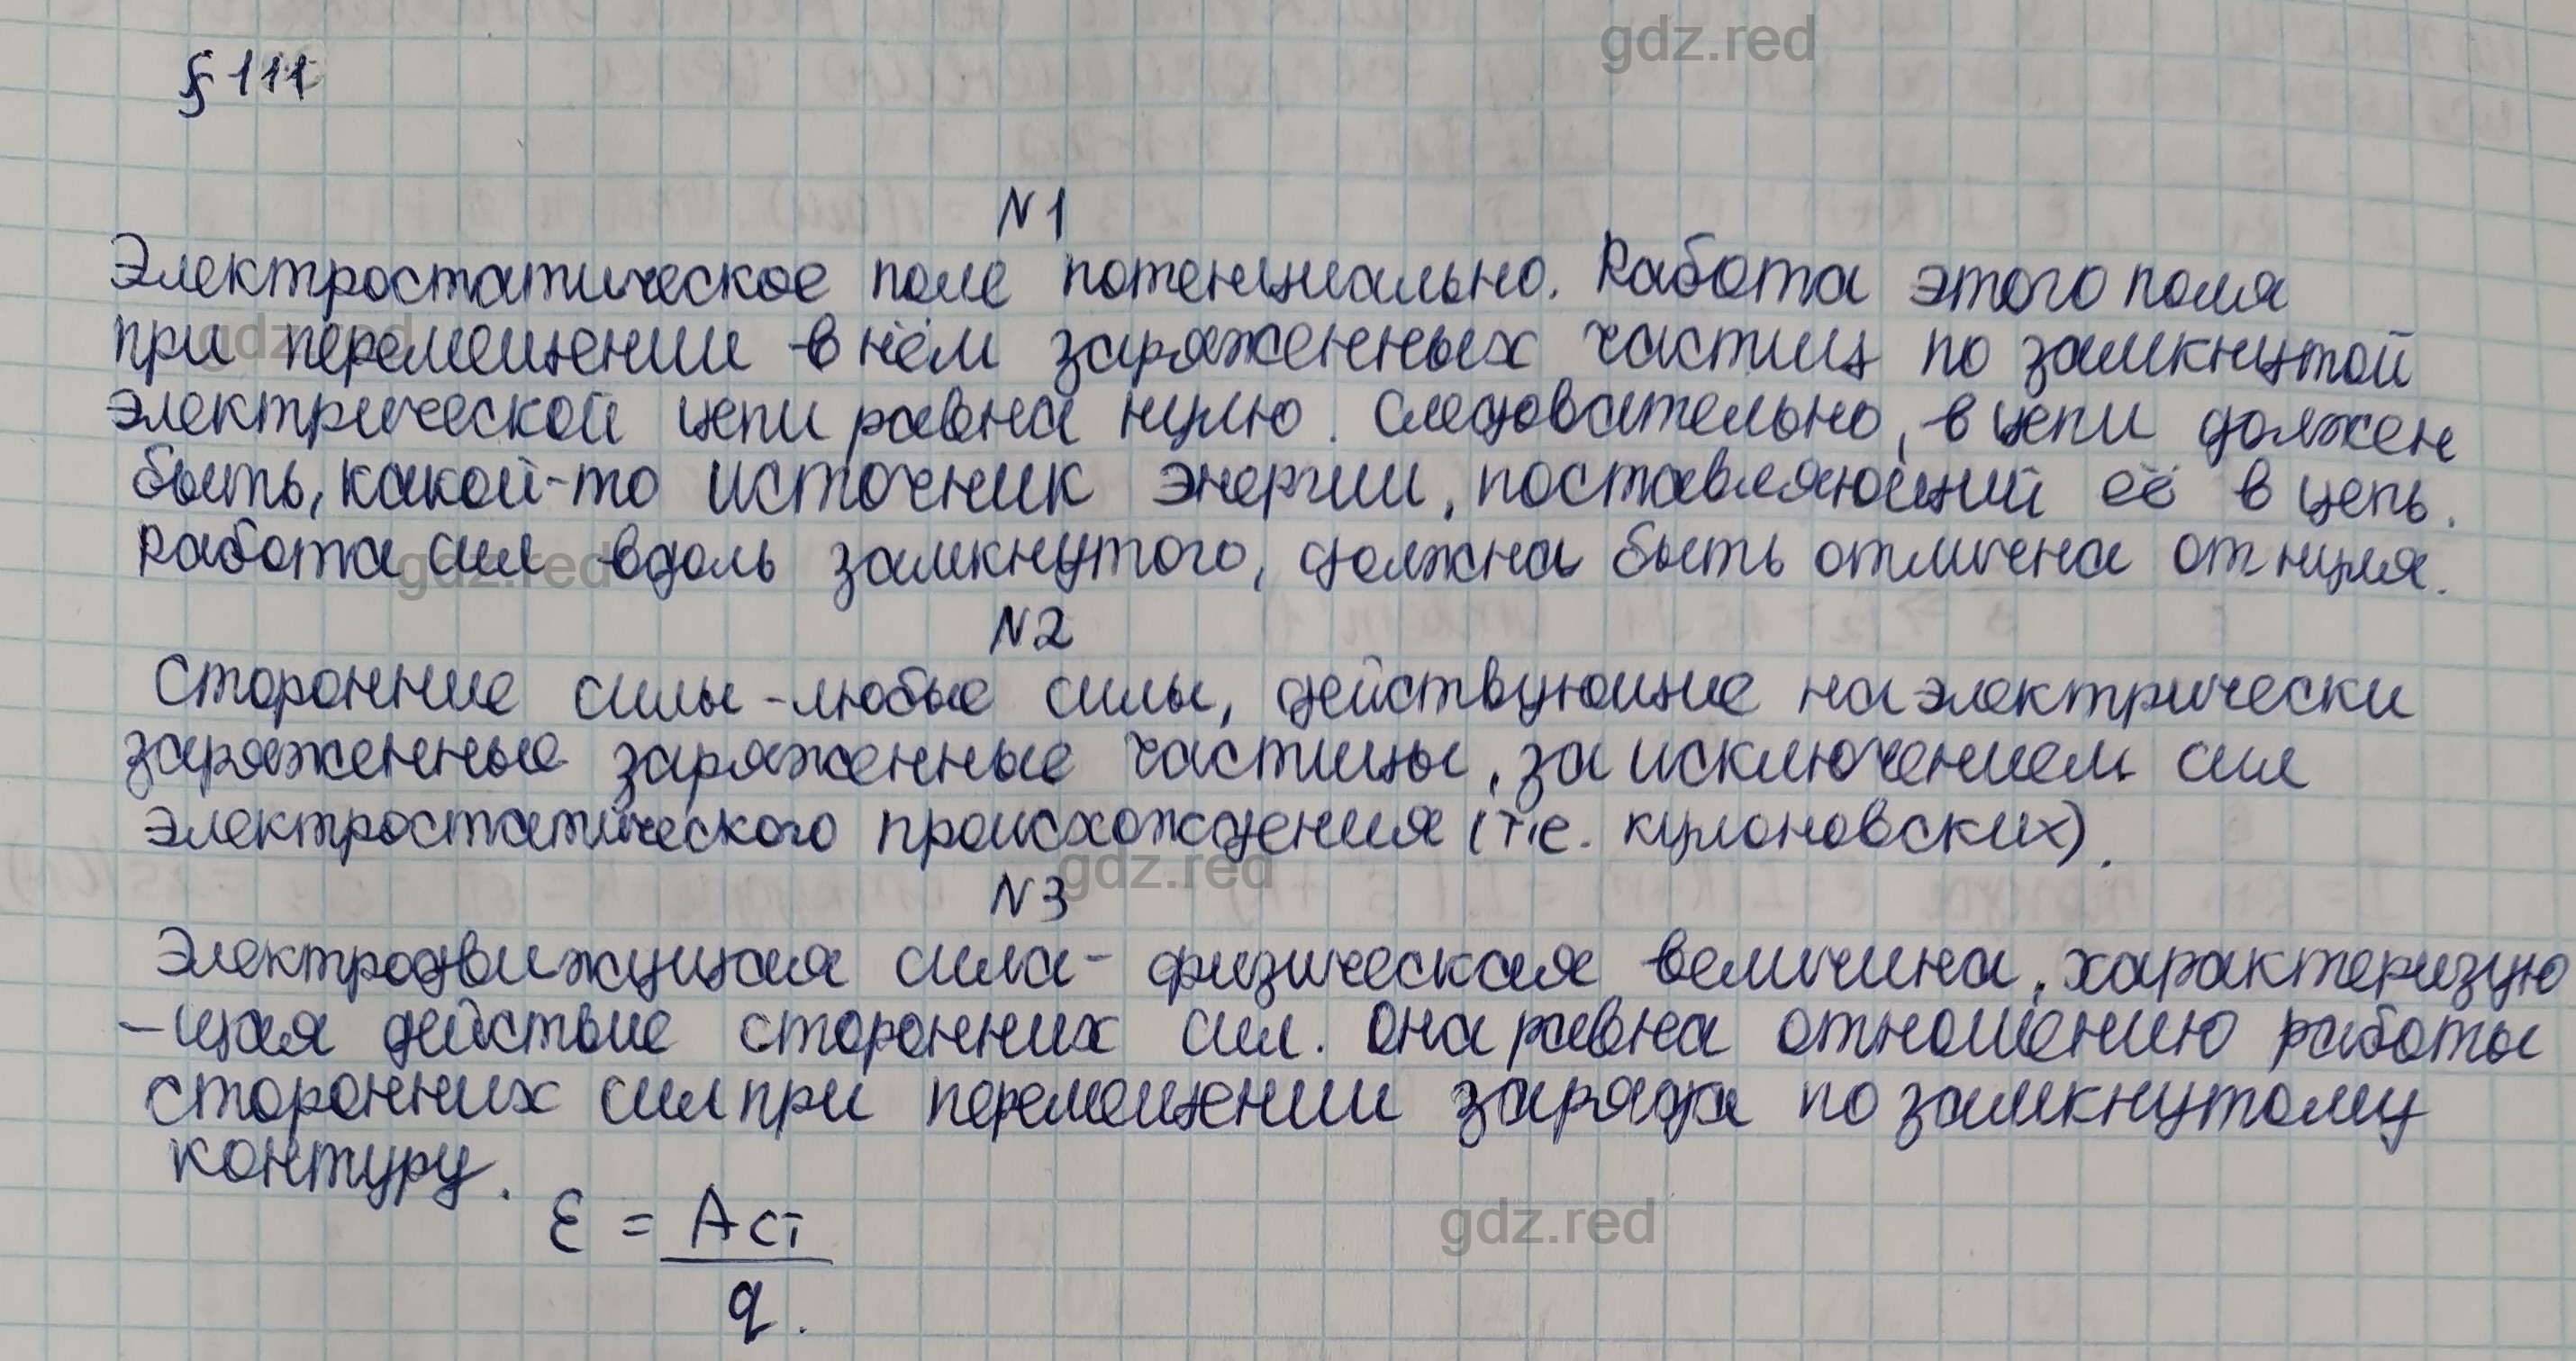 gdz.red
§ 111
N 1
Электростатическое поле потенциально. Работа этого поля
при перемещении в нём заряженных частиц по замкнутой
gdz.red
электрической цепи равна нулю. Следовательно, в цепи должен
быть, какой-то источник энергии, поставляющий её в цепь.
Работа сил вдоль замкнутого, должна быть отлична от нуля.
gdz.red
N 2
Сторонние силы - любые силы, действующие на электрически
заряженные заряженные частицы, за исключением сил
электростатического происхождения (т.е. кулоновских).
gdz.red
N 3
Электродвижущая сила - физическая величина, характеризую
-щая действие сторонних сил. Она равна отношению работы
сторонних сил при перемещении заряда по замкнутому
контуру.
ε = Aст
q.
gdz.red